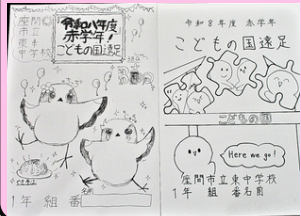 座間市立東中学校
令和八年度
赤学年!
こどもの国遠足
1年 組 番
名前
令和8年度 赤学年
こどもの国遠足
こどもの国
Here we go!
座間市立東中学校
1年 組 番名前